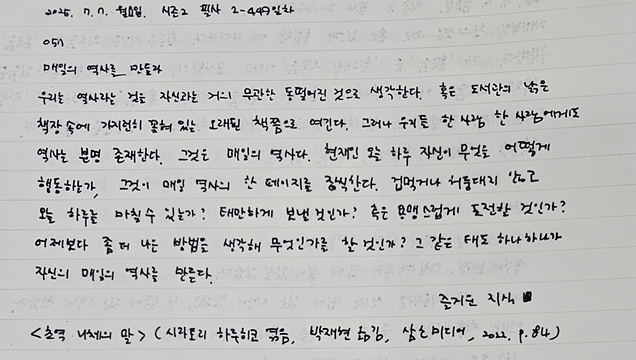 2025. 7. 7. 월요일. 시즌2 필사 2-449일차
051
매일의 역사를 만들라
우리는 역사라는 것을 자신과는 거의 무관한 동떨어진 것으로 생각한다. 혹은 도서관의 낡은
책장 속에 가지런히 꽂혀 있는 오래된 책쯤으로 여긴다. 그러나 우리들 한 사람 한 사람에게도
역사는 분명 존재한다. 그것은 매일의 역사다. 현재인 오늘 하루 자신이 무엇을 어떻게
행동하는가, 그것이 매일 역사의 한 페이지를 장식한다. 겁먹거나 허둥대지 않고
오늘 하루를 마칠 수 있는가? 태만하게 보낼 것인가? 혹은 용맹스럽게 도전할 것인가?
어제보다 좀 더 나은 방법을 생각해 무엇인가를 할 것인가? 그 같은 태도 하나하나가
자신의 매일의 역사를 만든다.
즐거운 지식
<초역 니체의 말> (시라토리 하루히코 엮음, 박재현 옮김, 삼호미디어, 2022, p.84)